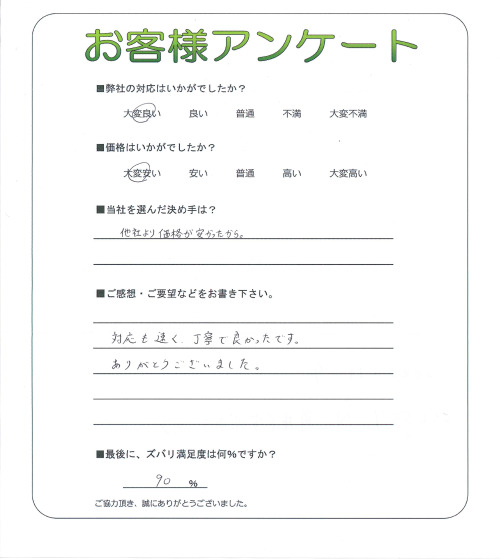 お客様アンケート
■弊社の対応はいかがでしたか？
大変良い 良い 普通 不満 大変不満
■価格はいかがでしたか？
大変安い 安い 普通 高い 大変高い
■当社を選んだ決め手は？
他社より価格が安かったから。
■ご感想・ご要望などをお書き下さい。
対応も速く、丁寧で良かったです。
ありがとうございました。
■最後に、ズバリ満足度は何%ですか？
90 %
ご協力頂き、誠にありがとうございました。